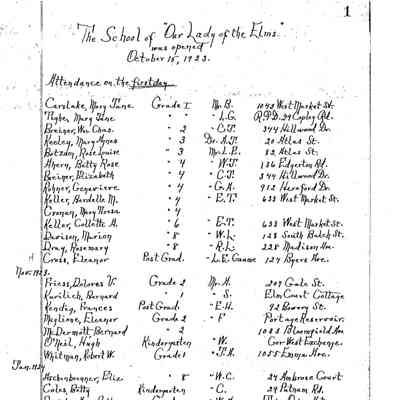 1
The School of "Our Lady of the Elms"
was opened
October 15, 1923.
Attendance on the first day
Carslake, Mary Jane Grade I Mr. B. 1042 West Market St.
Pughe, Mary Jane " " " L.G. R.F.D. 24 Copley Rd.
Breiner, Wm. Chas. " 2 " C.T. 344 Hillwood Dr.
Keeley, Mary Agnes " 3 Dr. A.T. 20 Atlas St.
Botzum, Rose Louise " 3 Mr. L.P. 82 Atlas St.
Ahern, Betty Rose " 4 " W.T. 136 Edgerton Rd.
Breiner, Elizabeth " 4 " C.T. 344 Hillwood Dr.
Rohner, Genevieve " 4 " G.A. 912 Hereford Dr.
Keller, Bardelle M. " 4 " E.T. 633 West Market St.
Cronan, Mary " 4
Keller, Collette H. " 6 " E.T. 633 West Market St.
Davison, Marion " 8 " W.L. 128 South Balch St.
Dray, Rosemary " 8 " R.L. 228 Madison Ave.
Cross, Eleanor Post Grad. " L.E. 127 Byers Ave.
Nov. 1923.
Friess, Dolores V. Grade 2 Mr. H. 209 Gale St.
Kurilich, Bernard " 1 " S. Elm Court Cottage
Kendig, Frances Post Grad. " E.H. 92 Bowery St.
Migliano, Eleanor Grade 2 " F Portage Reservoir.
McDermott, Bernard " 2 1088 Bloomfield Ave
O'Neil, Hugh Kindergarten " W. Cor. West Exchange.
Whitman, Robert W. Grade 1 " J.K. 1055 Emma Ave.
Jan. 1924
Aschenbrenner, Eliz. " 8 " W.C. 24 Ambrose Court
Coles, Betty Kindergarten " C. 24 Putnam Rd.